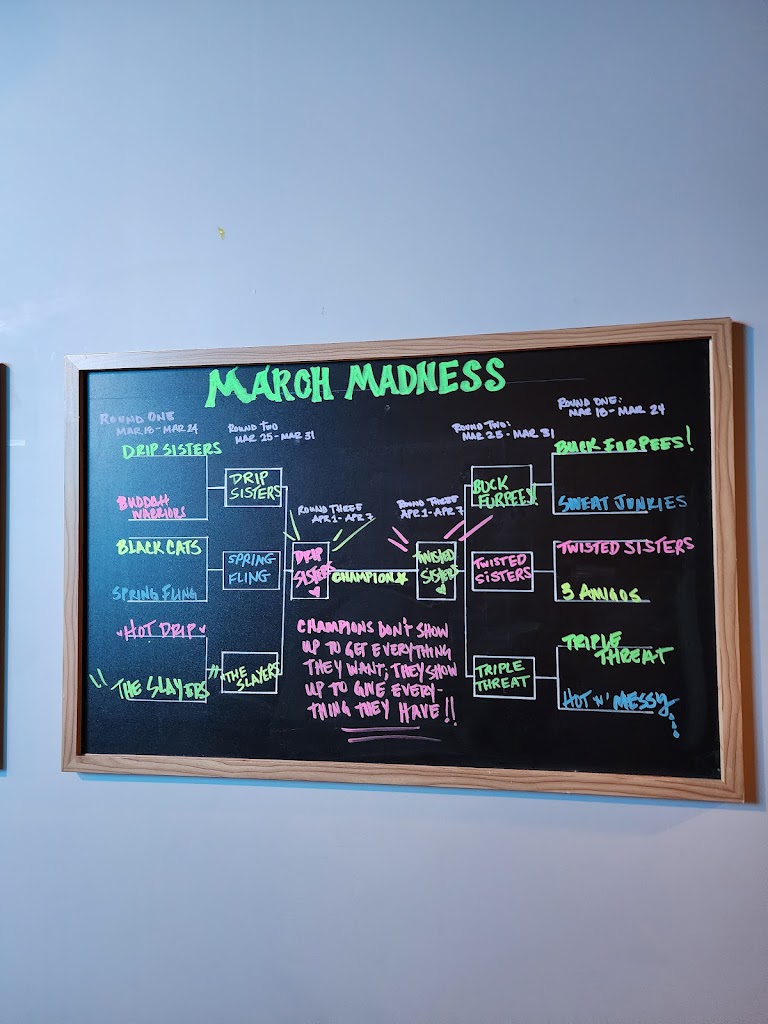 MARCH MADNESS
ROUND ONE
MAR 18 - MAR 24
DRIP SISTERS
BUDDAH
WARRIORS
BLACK CATS
SPRING FLING
HOT DRIP
"THE SLAYERS"
ROUND TWO
MAR 25 - MAR 31
DRIP
SISTERS
SPRING
FLING
THE
SLAYERS
ROUND THREE
APR 1 - APR 7
DRIP
SISTERS
CHAMPION
ROUND THREE
APR 1 - APR 7
TWISTED
SISTERS
CHAMPIONS DON'T SHOW
UP TO GET EVERYTHING
THEY WANT; THEY SHOW
UP TO GIVE EVERY-
THING THEY HAVE!!
ROUND TWO:
MAR 25 - MAR 31
BUCK
FURPEES!
TWISTED
SISTERS
TRIPLE
THREAT
ROUND ONE:
MAR 18 - MAR 24
BUCK FURPEES!
SWEAT JUNKIES
TWISTED SISTERS
3 AMIGOS
TRIPLE
THREAT
HOT 'N' MESSY